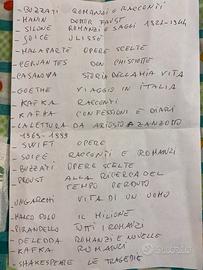 - BUZZATI ROMANZI E RACCONTI
- MANN DOKTOR FAUST
- SILONE ROMANZI E SAGGI 1927-1944
- JOICE ULISSE
- MALAPARTE OPERE SCELTE
- CERVANTES DON CHISCIOTTE
- CASANOVA STORIA DELLA MIA VITA
- GOETHE VIAGGIO IN ITALIA
- KAFKA RACCONTI
- KAFKA CONFESSIONI E DIARI
- LA LETTURA DA ARIOSTO A ZANZOTTO
- SWIFT OPERE
- RACCONTI E ROMANZI
- BUZZATI OPERE SCELTE
- PROUST ALLA RICERCA DEL
TEMPO PERDUTO
UNGARETTI VITA DI UN UOMO
MARCO POLO IL MILIONE
- PIRANDELLO TUTTI I ROMANZI
- DELEDDA ROMANZI E NOVELLE
- KAFKA ROMANZI
- SHAKESPEARE LE TRAGEDIE
subito